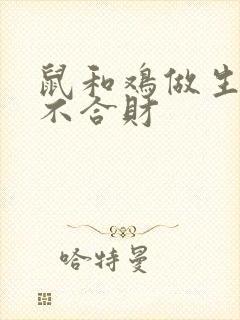 鼠和鸡做生
不合財
哈特曼